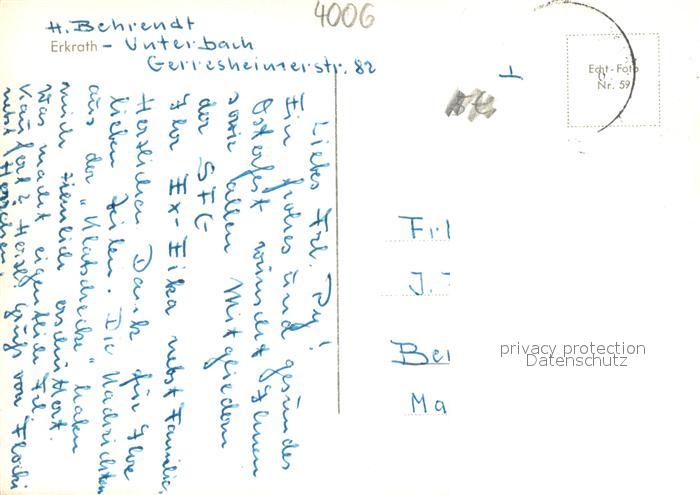 4006
H. Behrendt
Erkrath - Unterbach
Gerresheimerstr. 82
Echt-Foto
Nr. 59
Liebes Frl. Py!
Ein frohes und gesundes
Osterfest wünscht Ihnen
sowie allen Mitgliedern
der SFG
Ihr Ex-Fika nebst Familie.
Herzlichen Dank für Ihre
lieben Zeilen. Die Nachrichten
aus der "Klatschecke" haben
mich ziemlich erschüttert.
Was macht eigentlich Frl.
Gruß von
Frl
J.
Ber
Ma
privacy protection
Datenschutz